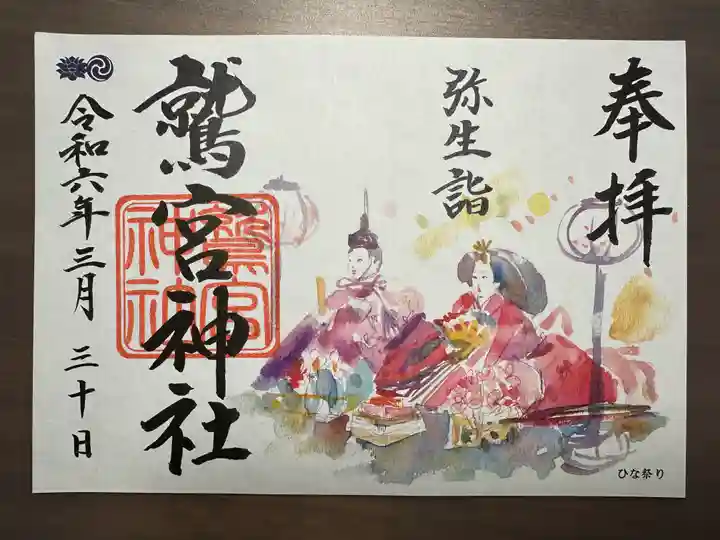 奉拝
弥生詣
鷲宮神社
鷲宮
神社
令和六年三月三十日
ひな祭り